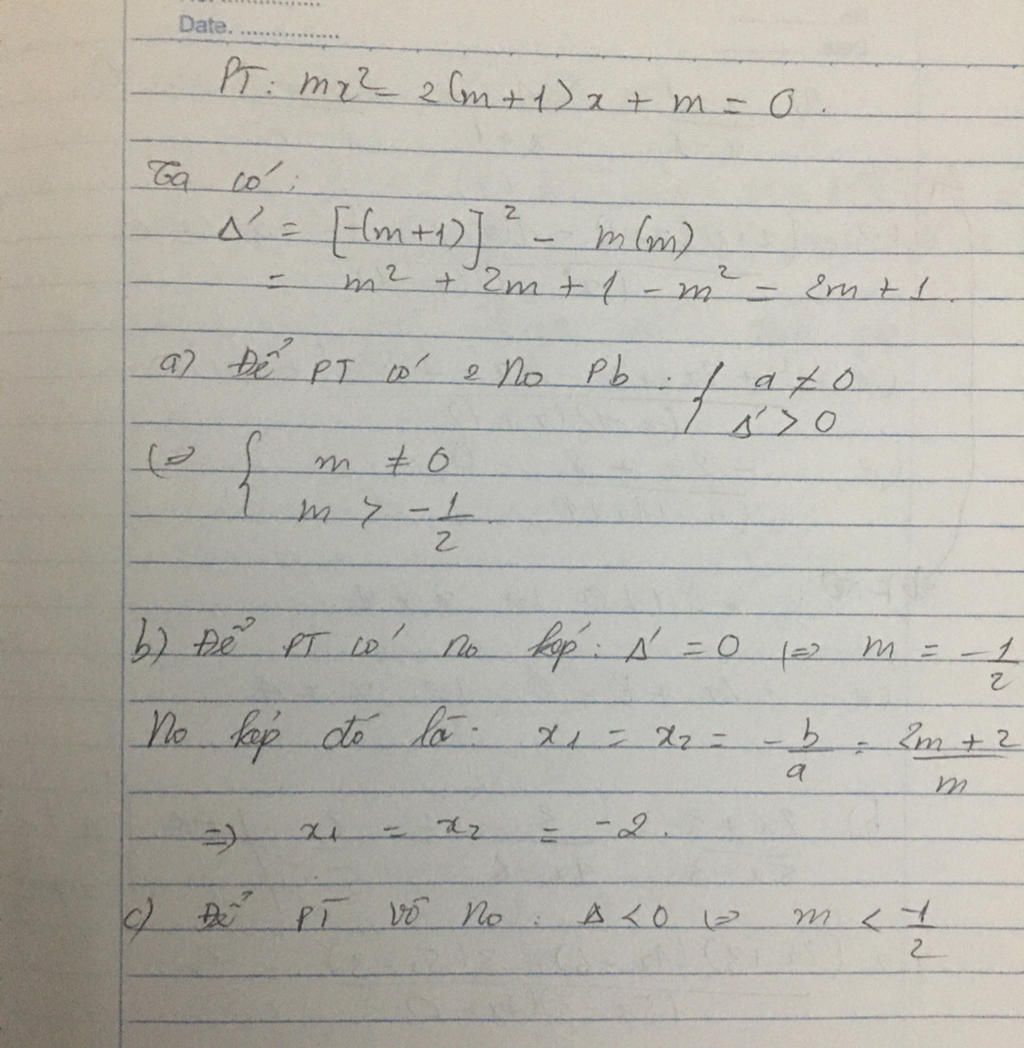 Date. ................
PT: mx² = 2(m+1)x + m = 0.
Ta có:
Δ' = [-(m+1)]² - m(m)
= m² + 2m + 1 - m² = 2m + 1.
a) Để PT có 2 no Pb : { a ≠ 0
Δ' > 0
(=> { m ≠ 0
m > -1/2
b) Để PT có no kép: Δ' = 0 (=> m = -1/2
No kép đó là: x₁ = x₂ = -b/a = (2m + 2)/m
=> x₁ = x₂ = -2.
c) Để PT vô no : Δ < 0 (=> m < -1/2